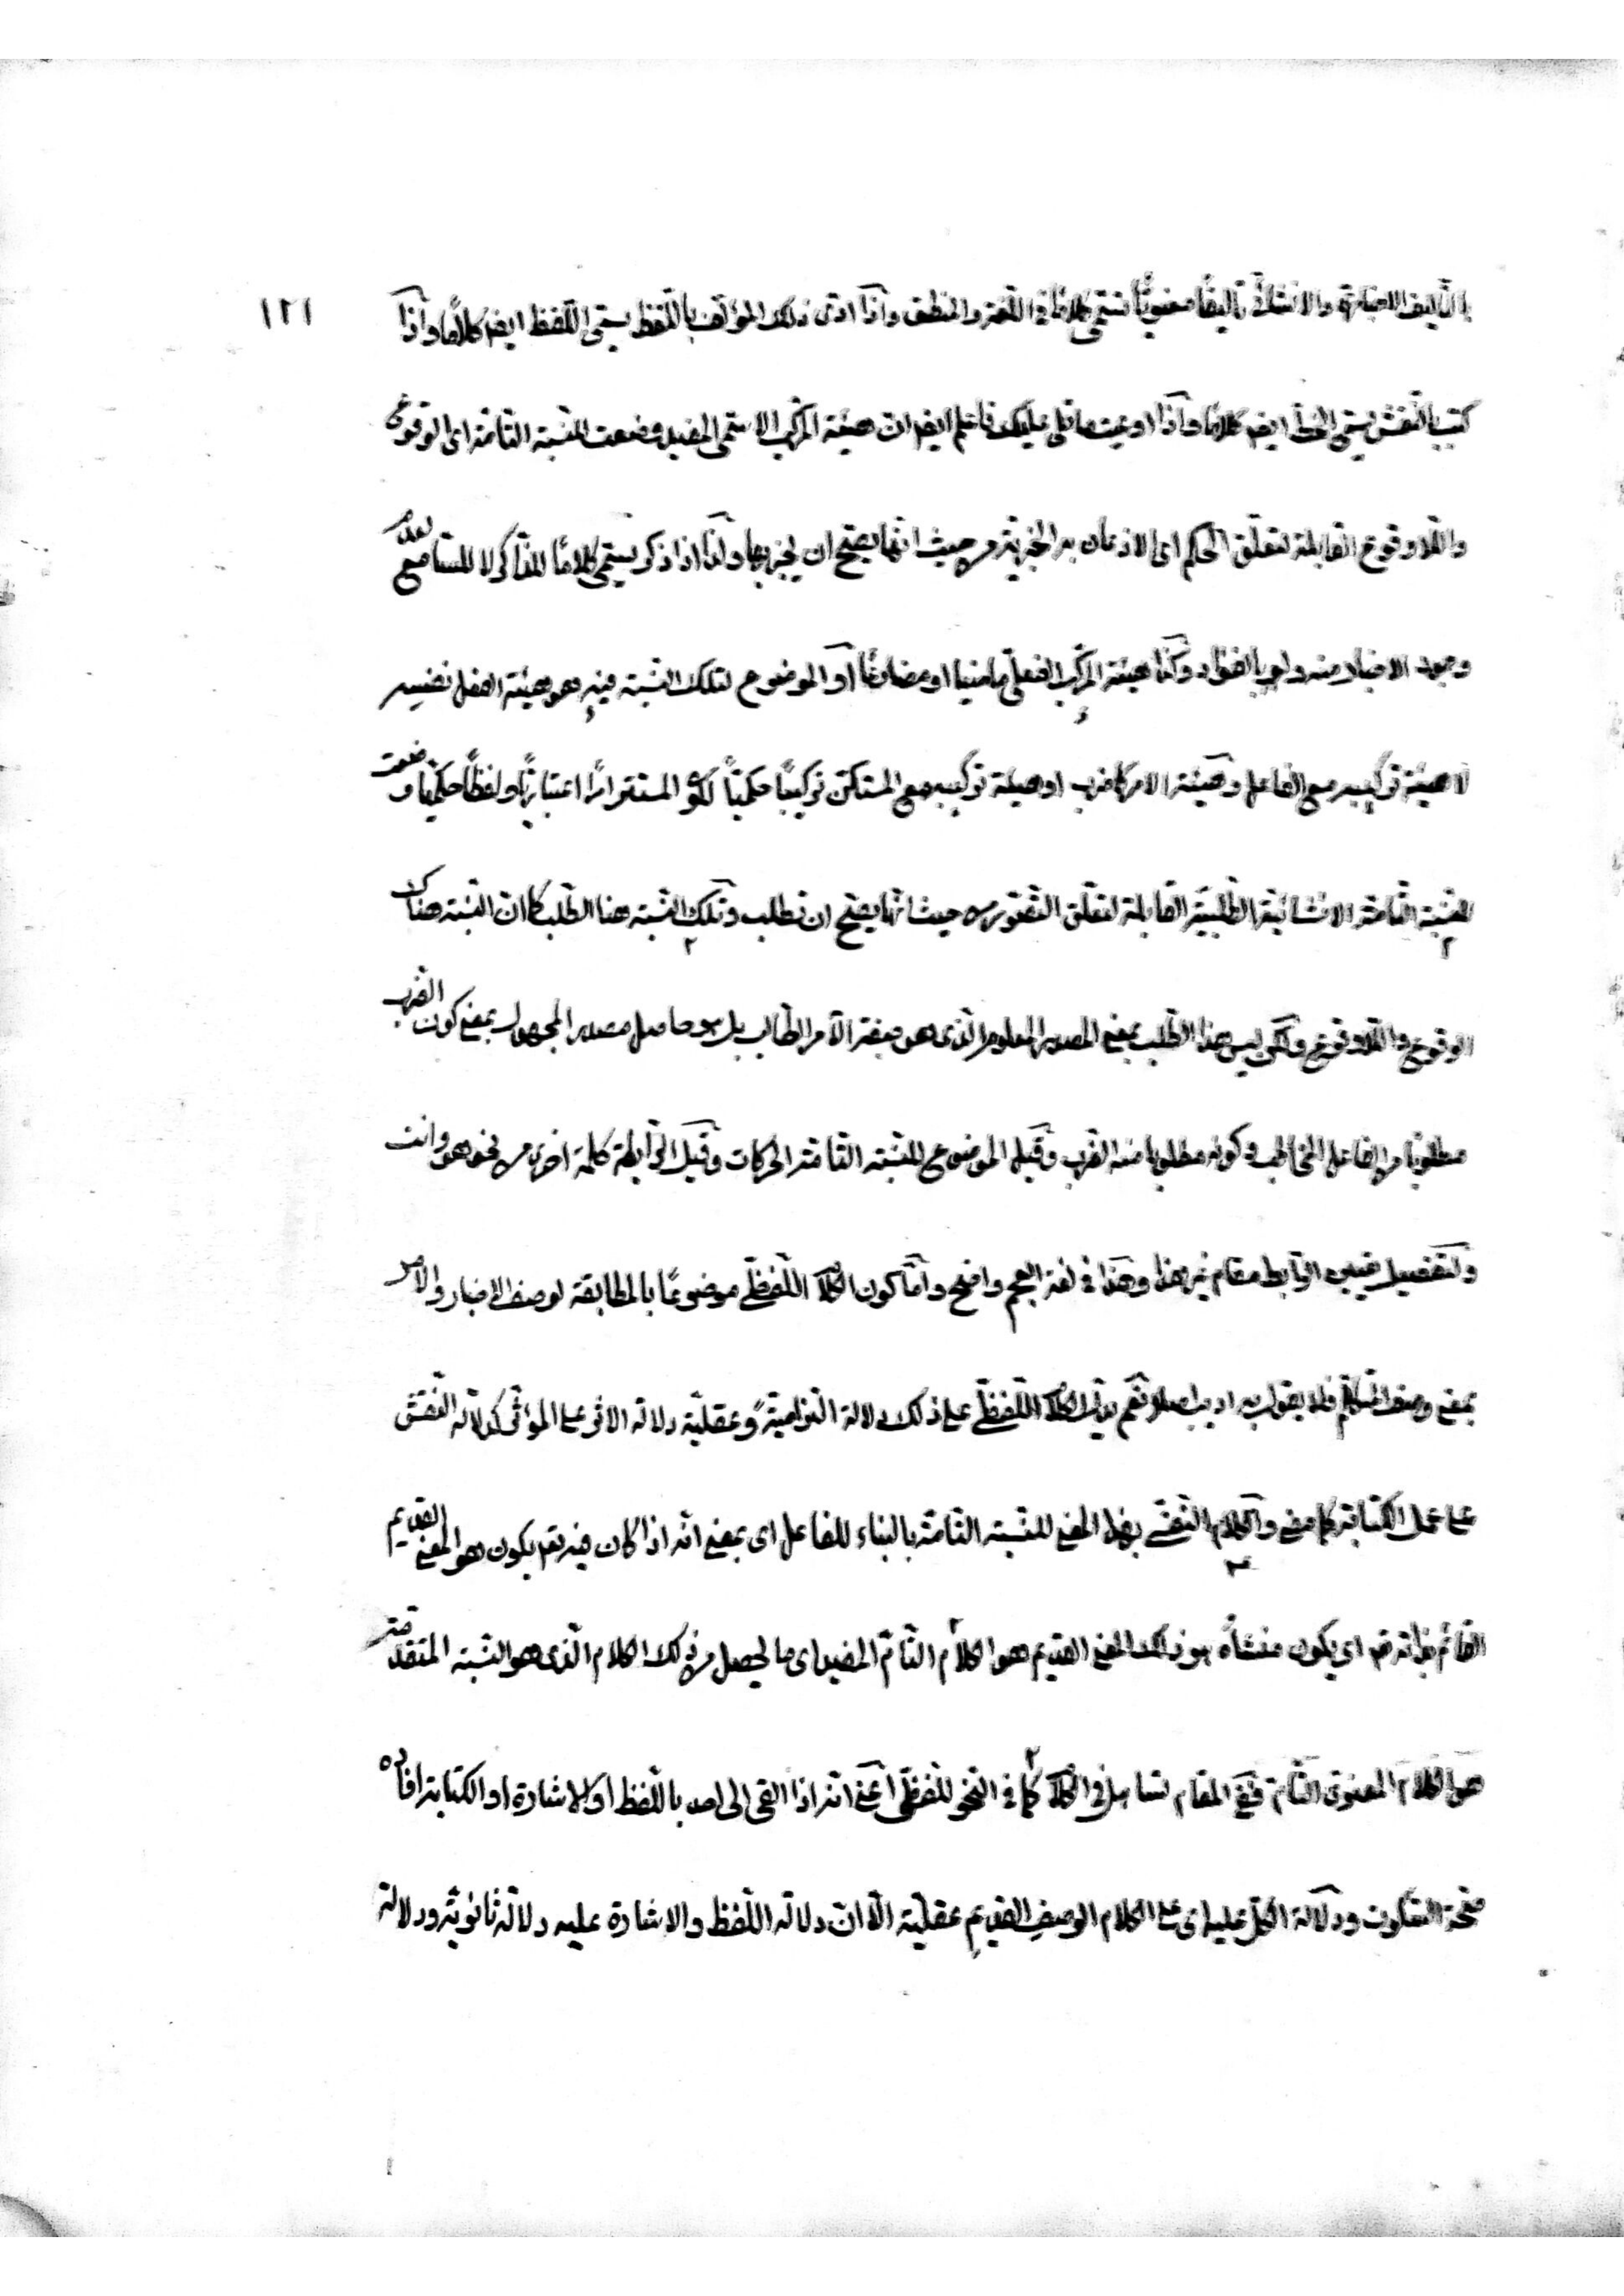 ١٢١
بالتأليف الاخبارى والانشائى تأليفًا معنويًّا تسمى كلامًا فى اللغة والمنطق واذا ادى ذلك المؤلف باللفظ يسمى اللفظ ايضا كلامًا واذا
كتب بالنقش يسمى الخط ايضا كلامًا واذا اوعيت ما تلى عليك فاعلم ايضا ان هيئة المركب الاسمى المفيد وضعت للنسبة التامة اى الوقوع
واللاوقوع القابلة لتعلق الحكم اى الاذعان به الخبرية من حيث انها يصح ان يخبر بها ولذا اذا ذكر يسمى كلامًا للذاكر لا للسامع لعدم
وجود الاخبار منه ولو بالفؤاد وكذا هيئة المركب الفعلى ماضيا او مضارعًا او الموضوع لتلك النسبة فيه هو هيئة الفعل نفسه
لا هيئة تركيبه مع الفاعل وهيئة الامر كاضرب او هيئة تركيبه مع المستكن تركيبًا حكميًّا لكون المستتر امرًا اعتباريًّا ولفظًا حكميًّا وضعت
للنسبة التامة الانشائية الطلبية القابلة لتعلق التصور من حيث انها يصح ان تطلب وتلك النسبة هنا الطلب كما ان النسبة هناك
الوقوع واللاوقوع ولكن ليس هذا الطلب بمعنى المصدر المعلوم الذى هو صفة الآمر الطالب بل هو حاصل مصدر المجهول بمعنى كون الضرب
مطلوبًا من الفاعل المخاطب وكونه مطلوبا منه الضرب وقيل الموضوع للنسبة التامة الحركات وقيل الرابطة كلمة اخرى من نحو هو وانت
ولتفصيل تعيين الرابط مقام غير هذا وهذا فى لغة العجم واضح واما كون الكلام اللفظى موضوعًا بالمطابقة لوصف الاخبار والامر
بمعنى وصف المتكلم فلا يقول به اديب اصلا نعم يدل الكلام اللفظى على ذلك دلالة التزامية وعقلية دلالة الاثر على المؤثر كدلالة النقش
على عمل الكتابة كما مضى والكلام النفسى بهذا المعنى للنسبة التامة بالبناء للفاعل اى بمعنى انه اذا كان فيه تعـ يكون هو المعنى القديم
القائم بذاته تعـ اى يكون منشأه هو ذلك المعنى القديم هو الكلام التام المفيد اى ما يحصل من ذلك الكلام الذى هو النسبة المتقدمة
هو الكلام المعنوى التام ففى المقام تساهل فى الكلام كما فى النحو للفظى اعنى انه اذا القى الى احد باللفظ او بالاشارة او الكتابة افاده
صحة السكوت ودلالة الكل عليه اى على الكلام الوصف القديم عقلية الا ان دلالة اللفظ والاشارة عليه دلالة ثانوية ودلالة